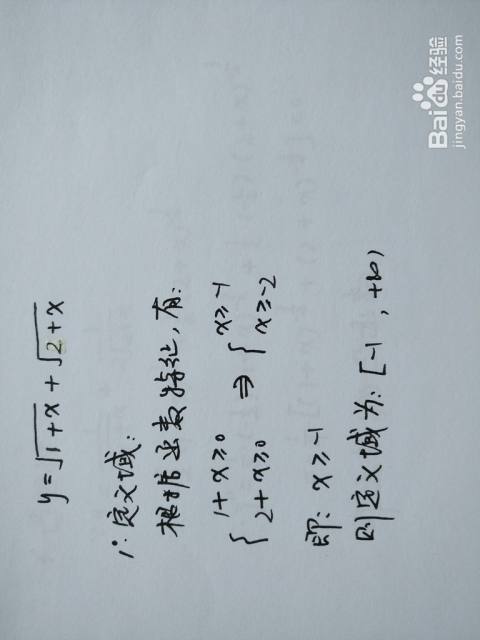 y=√1+x+√2+x
i.定义域:
根据函数特征,有:
{1+x≥0 2+x≥0 ⇒ {x≥-1 x≥-2
即:x≥-1
则定义域为:[-1,+∞)
Bai度经验
jingyan.baidu.com